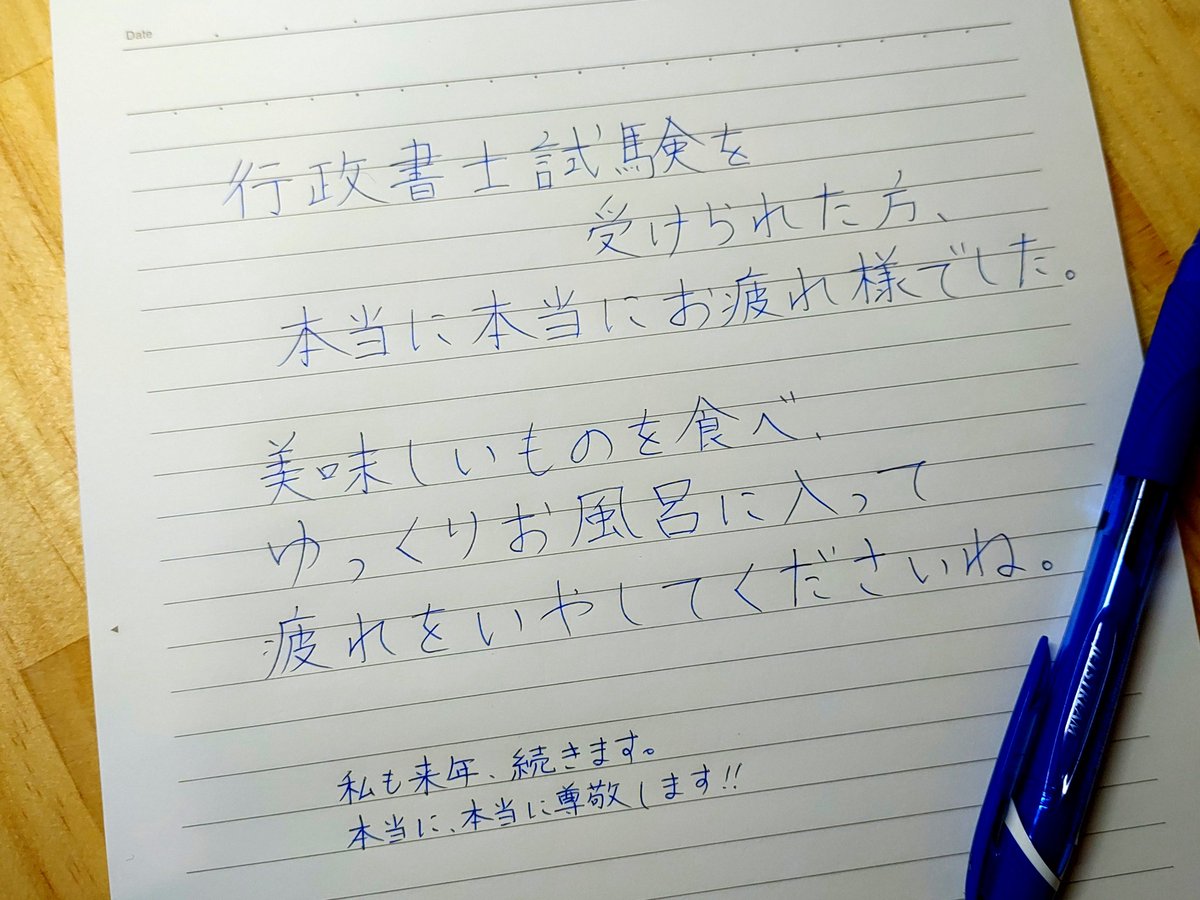 Date
行政書士試験を
受けられた方、
本当に本当にお疲れ様でした。
美味しいものを食べ、
ゆっくりお風呂に入って
疲れをいやしてくださいね。
私も来年、続きます。
本当に、本当に尊敬します!!
JETSTREAM